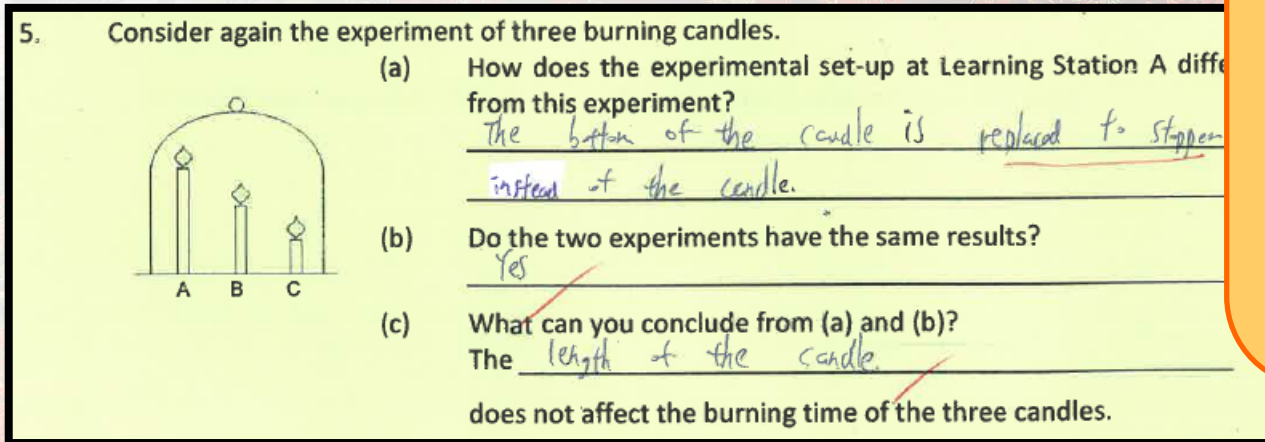 5. Consider again the experiment of three burning candles.
(a) How does the experimental set-up at Learning Station A diffe
from this experiment?
The bottom of the candle is replaced to stopper
instead of the candle.
(b) Do the two experiments have the same results?
Yes
A B C
(c) What can you conclude from (a) and (b)?
The length of the candle.
does not affect the burning time of the three candles.